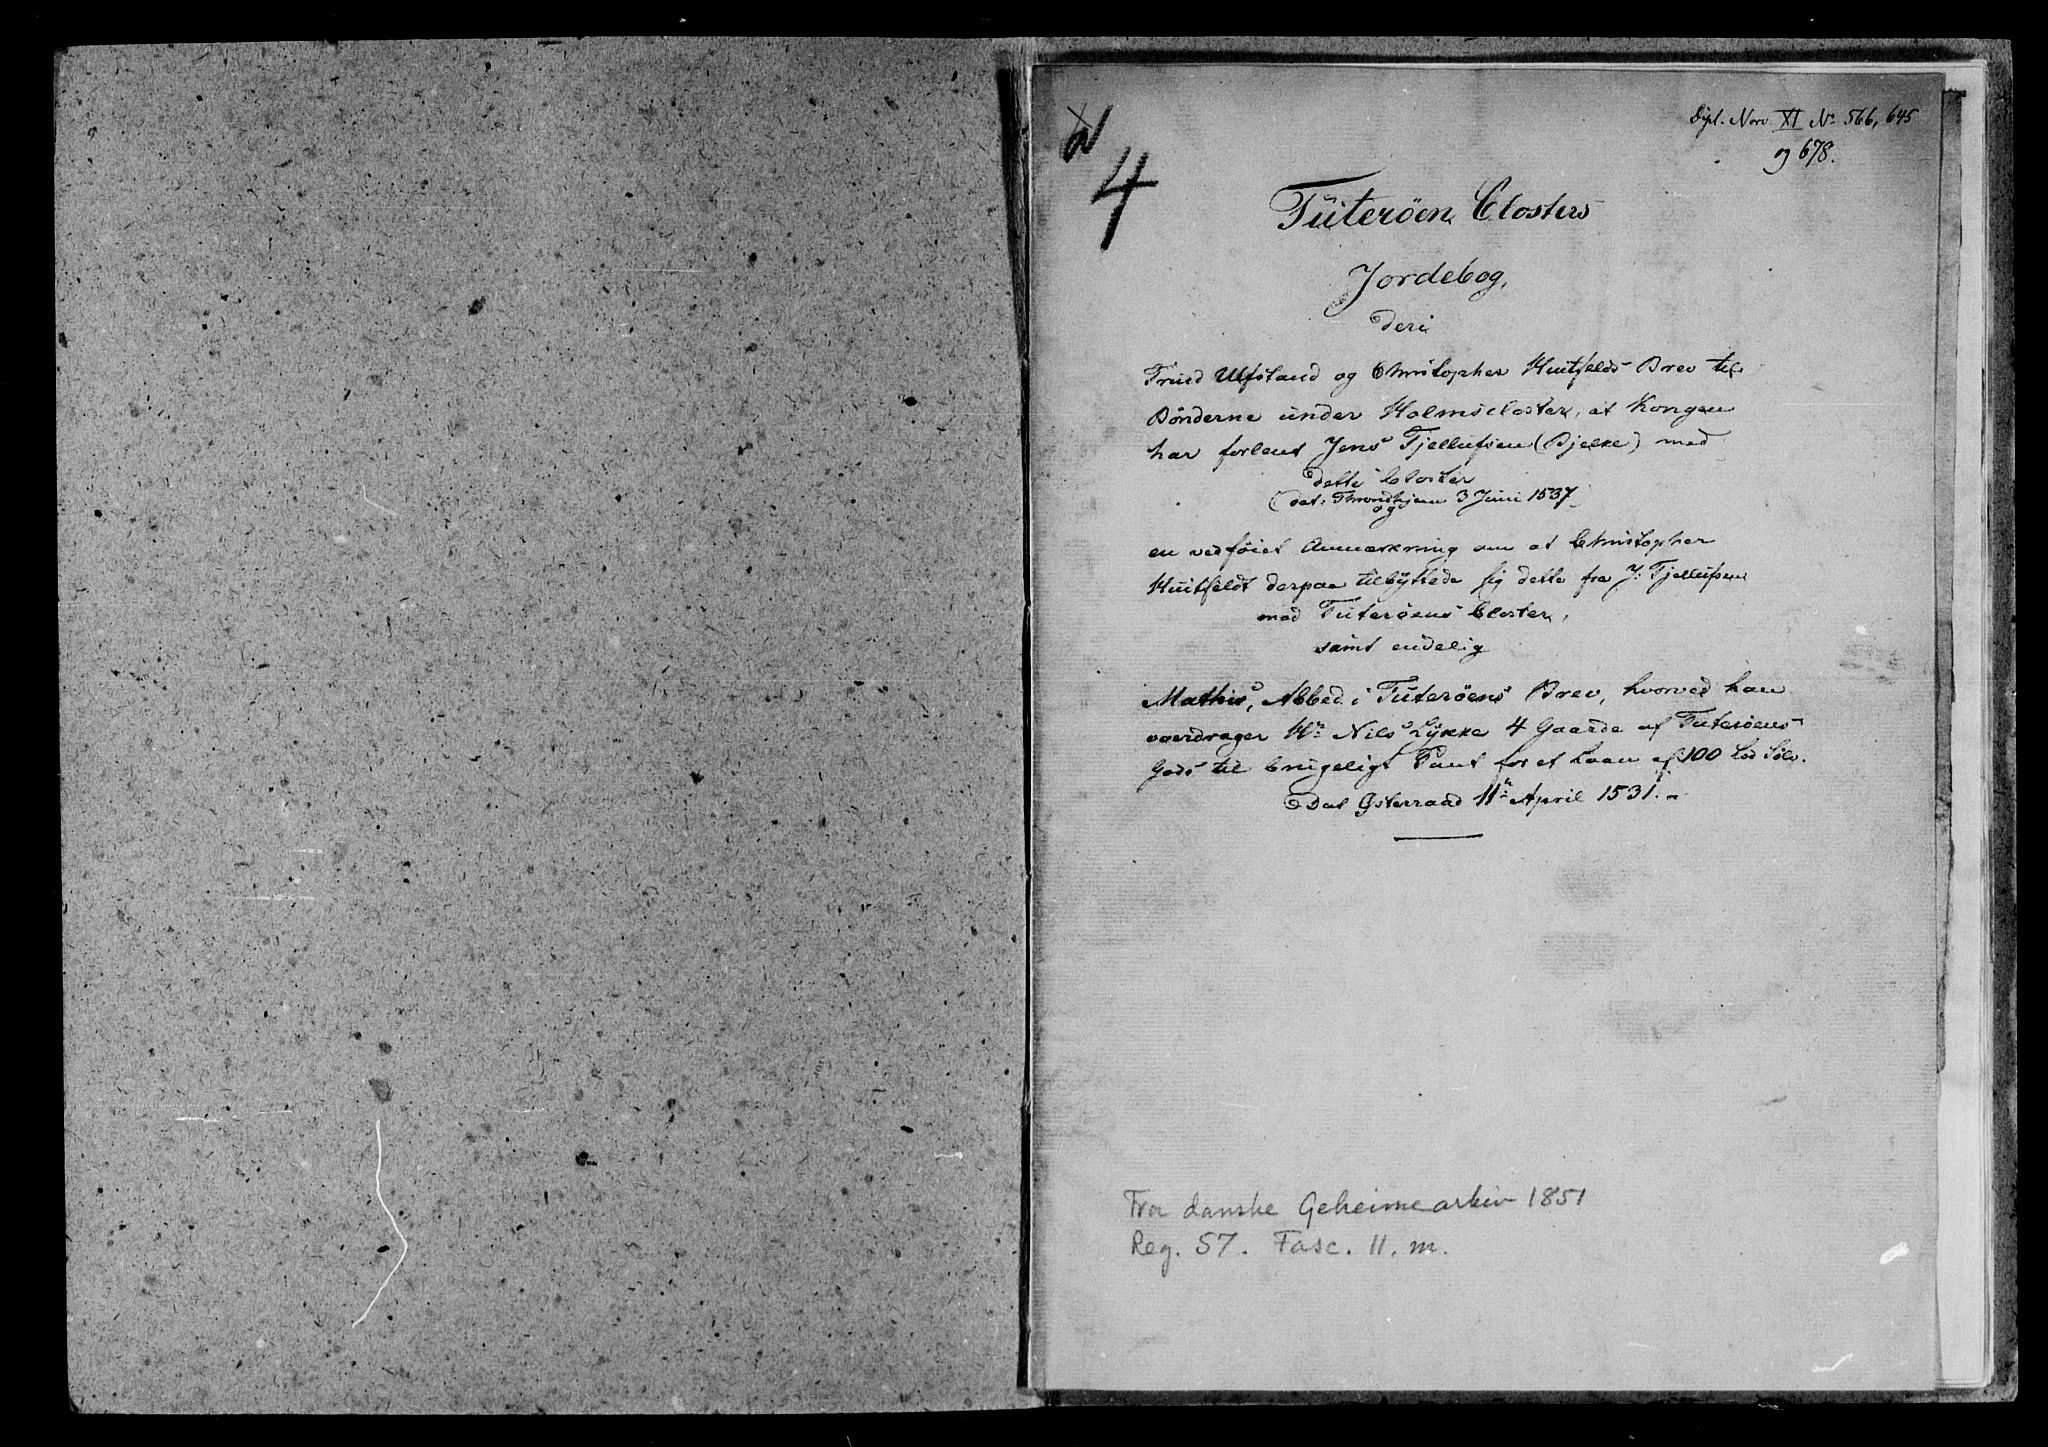 Dipl. Norv XI No 566, 645
og 678.
4
Tüterøen Closters
Jordebog,
deri
Truid Ulfstand og Christopher Huitfelds Brev til
Bønderne under Holmscloster, at Kongen
har forlent Jens Tjellufsen (Bjelke) med
dette Closter
(dat. Throndhjem 3 Juni 1537)
og
en vedføiet Anmærkning om at Christopher
Huitfeldt derpaa tilbyttede sig dette fra J. Tjellufsen
mod Tuterøens Closter,
samt endelig
Mathis, Abbed i Tüterøens Brev, hvorved han
overdrager Hr Nils Lykke 4 Gaarde af Tuterøens
Gods til brugeligt Pant for et Laan af 100 Lod Sølv.
Dat Østerraad 11te April 1531.
Fra danske Geheimearkiv 1851
Reg. 57. Fasc. 11. m.